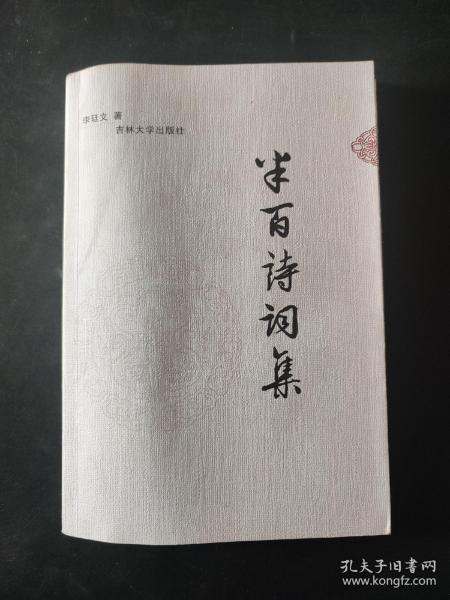 李廷文 著
吉林大学出版社
半百詩词集
孔夫子旧书网
www.kongfz.com